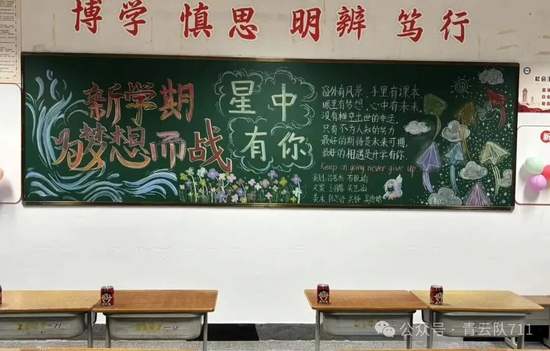 博学 慎思 明辨 笃行
新学期
为梦想而战
星中
有你
窗外有风景，手里有课本
眼里有梦想，心中有未来
没有横空出世的幸运
只有不为人知的努力
最好的期待是未来可期
最好的相遇是开学有你
Keep on going never give up
公众号·青云队711